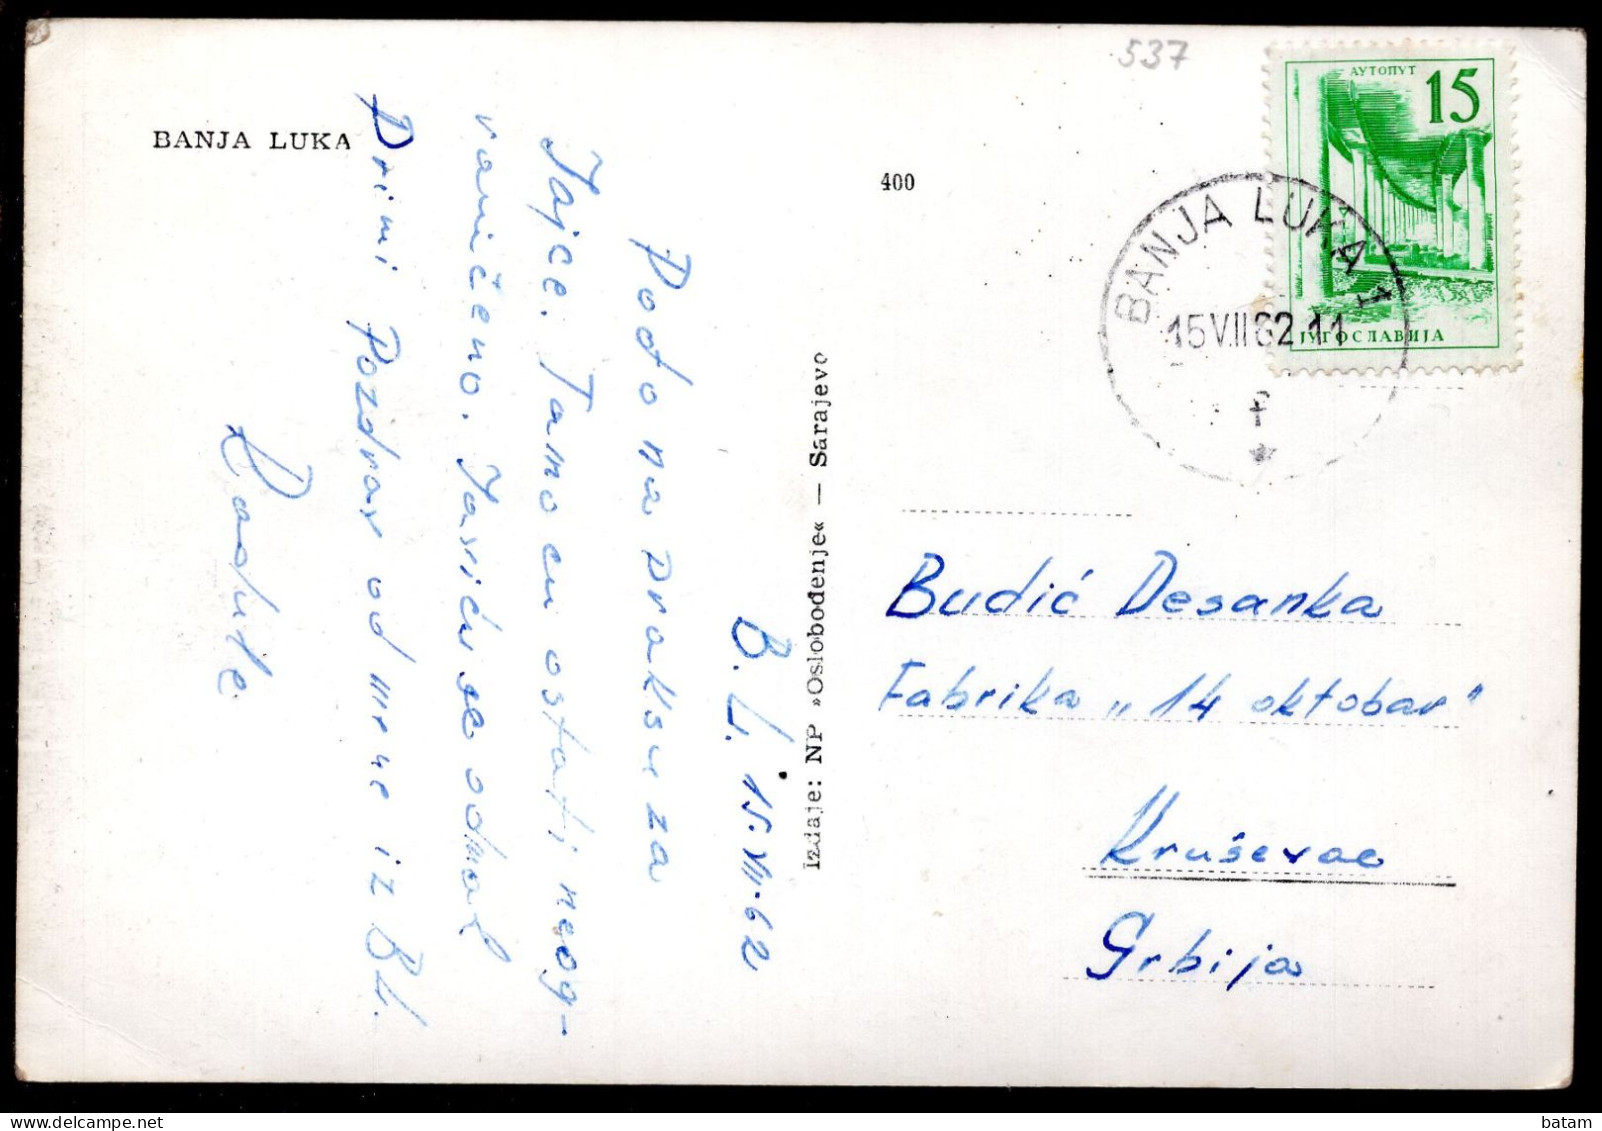 BANJA LUKA
537
400
АУТОПУТ
15
ЈУГОСЛАВИЈА
BANJA LUKA 1
15 VII 62 11
f
Izdaje: NP »Oslobođenje« — Sarajevo
B. L. 15. VII. 62
Pođo na praksu za
Jajce. Tamo ću ostati neog-
raničeno. Javiću se odmah
Primi Pozdrav od mene iz BL.
Budić Desanka
Fabrika „14 oktobar"
Kruševac
Srbija
batam